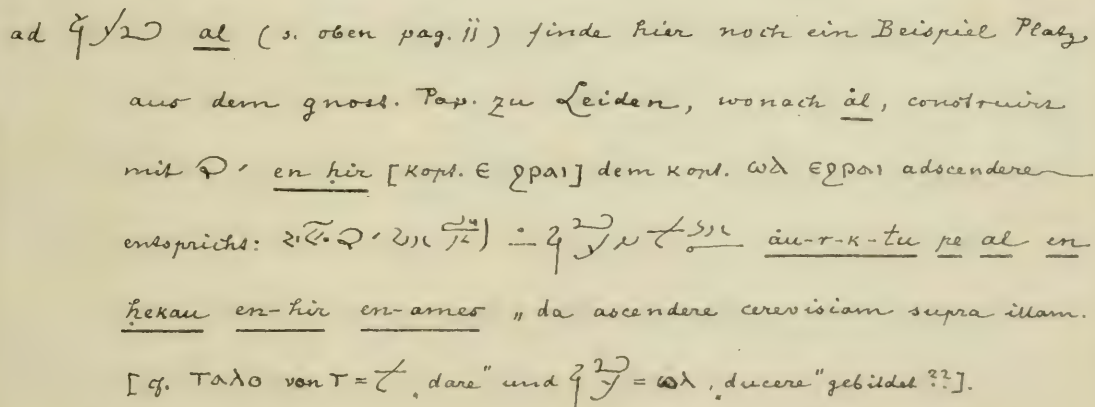 ad al (s. oben pag. jj) finde hier noch ein Beispiel Platz,
aus dem gnost. Pap. zu Leiden, wonach ȧl, construirt
mit en ḥir [kopt. Ⲉ ϩⲣⲁⲓ] dem kopt. ⲱⲗ ⲉϩⲣⲁⲓ adscendere
entspricht: ȧu-r-k-tu pe al en
ḥekau en-ḥir en-ames „da ascendere cerevisiam supra illam.
[cf. ⲧⲁⲗⲟ von ⲧ = „dare" und = ⲱⲗ „ducere" gebildet ??].